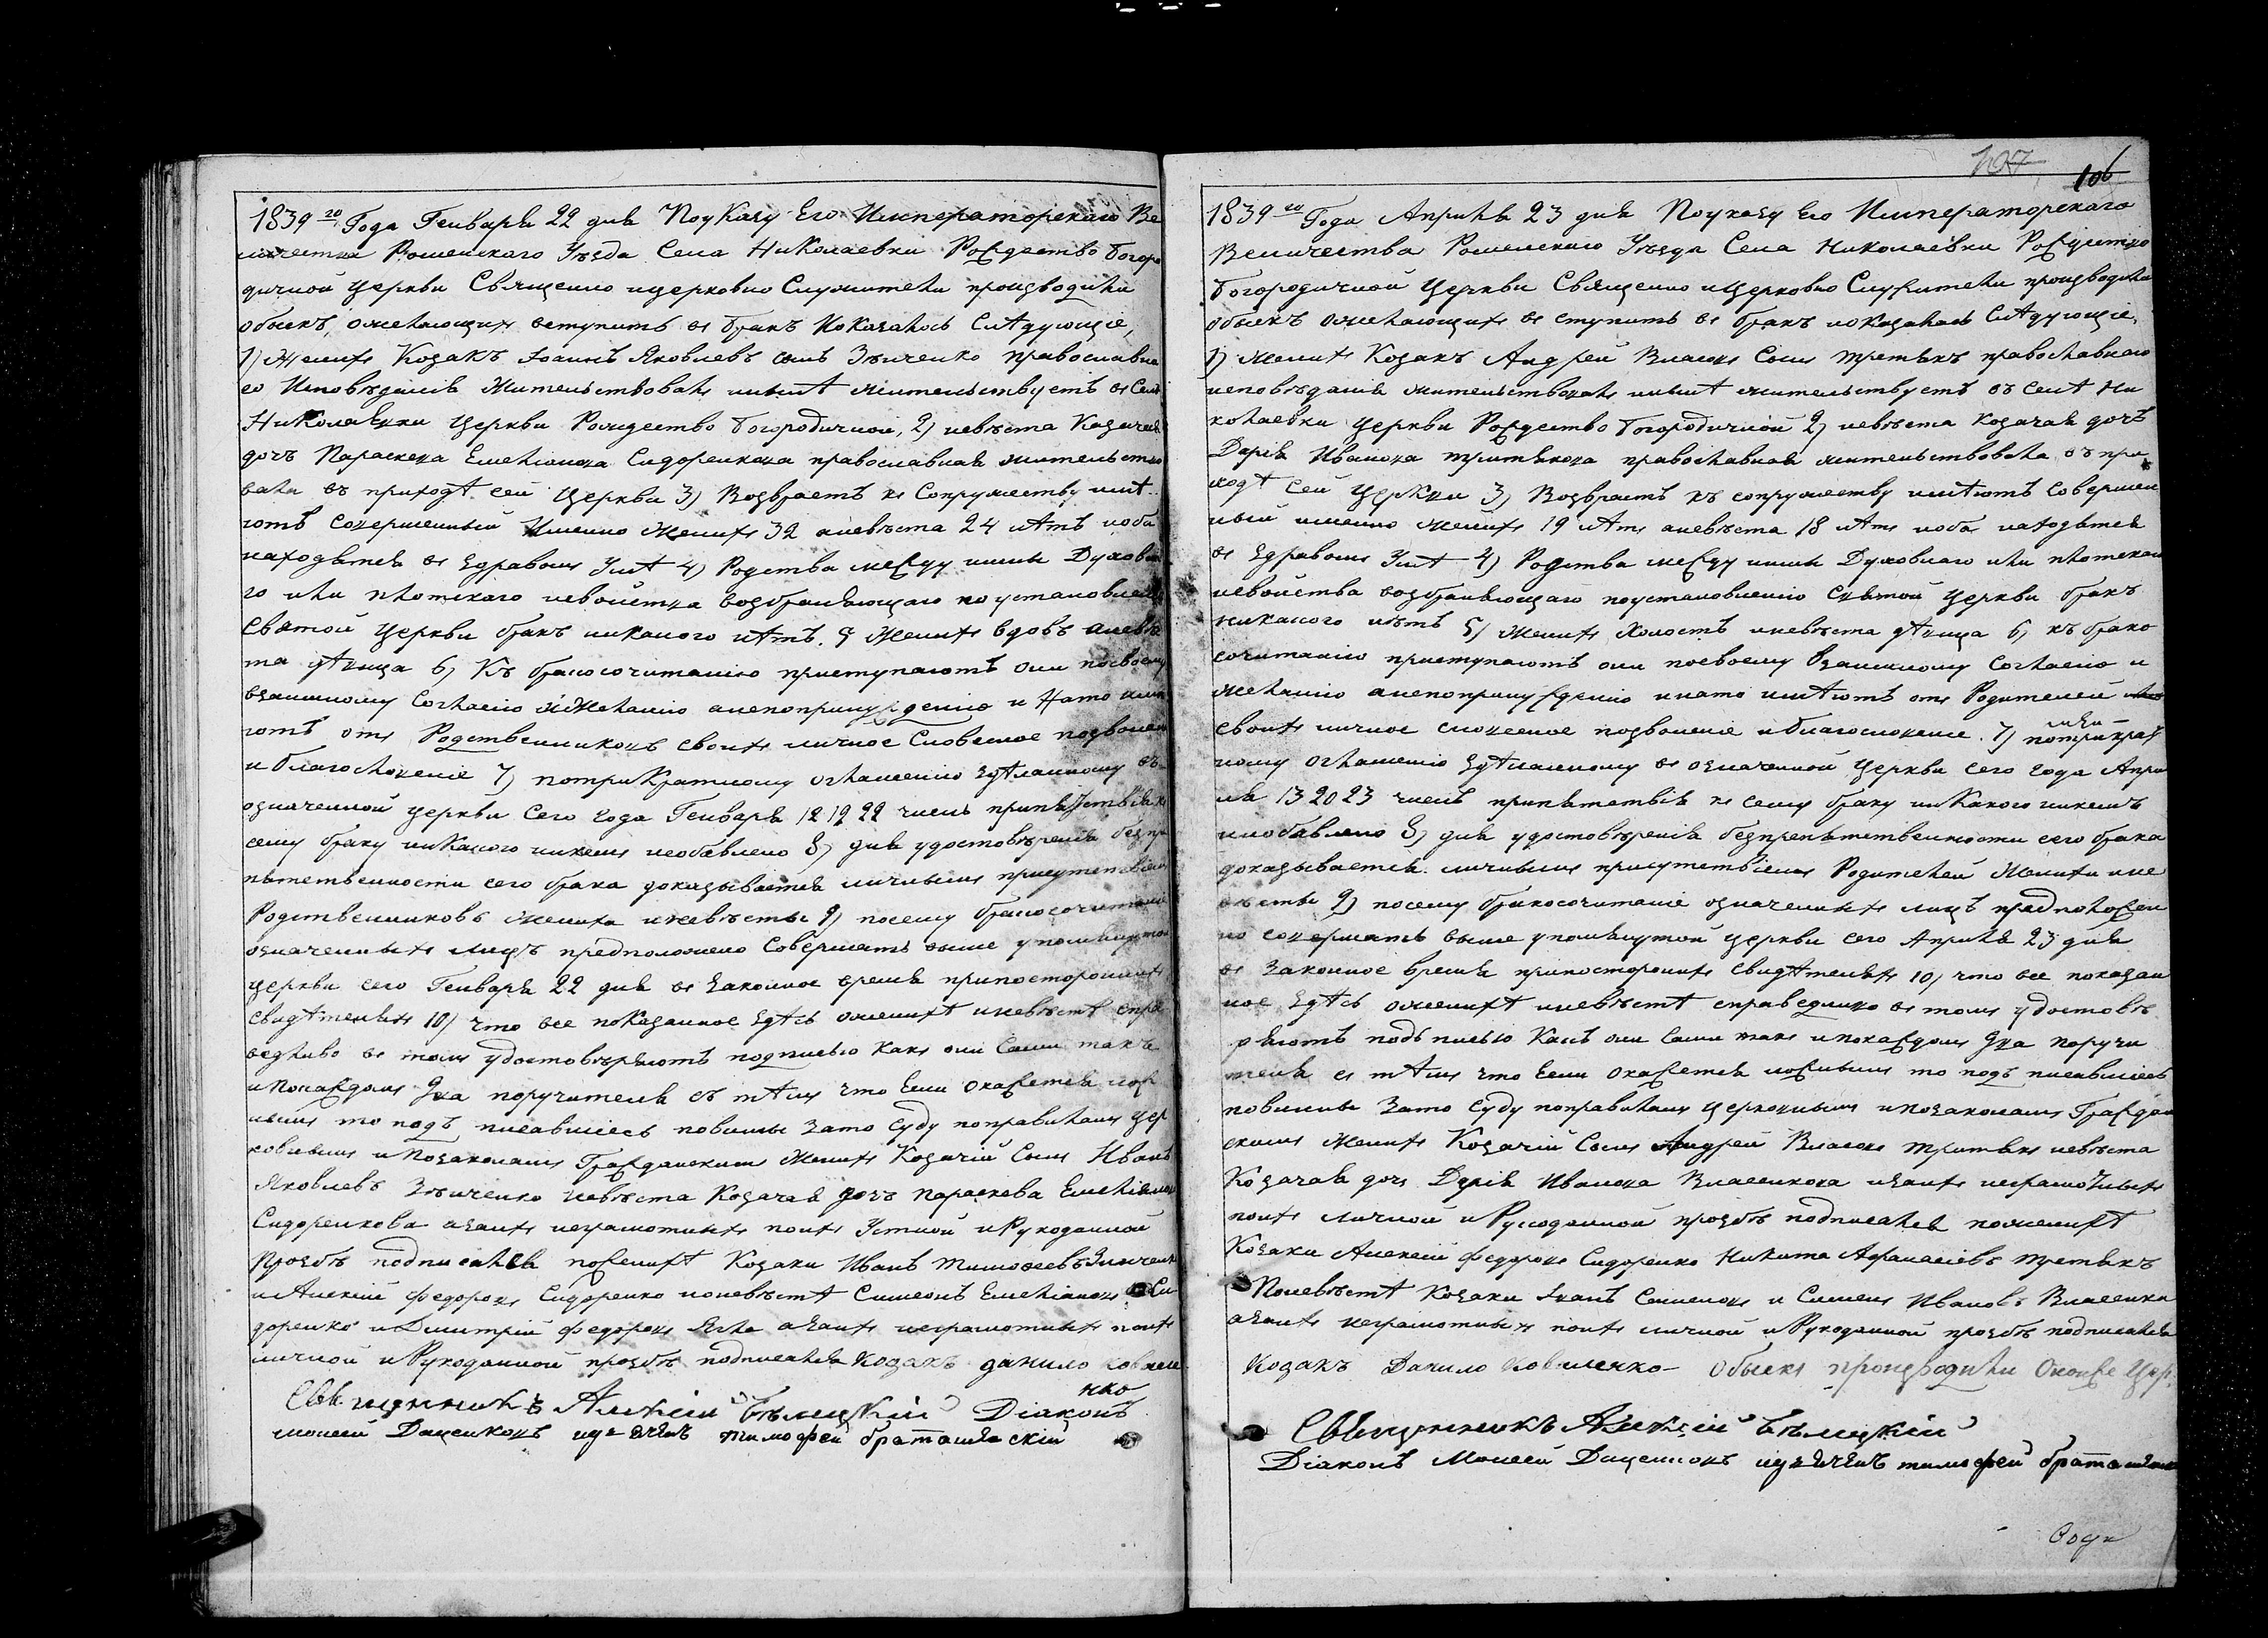 1839го Года Генваря 22 дня По указу Его Императорскаго Ве
личества Роменскаго Уезда Села Николаевки Рождество Богоро
дичной Церкви Священно ицерковно Служители производили
обыскъ, ожелающихъ вступить въ бракъ показалось Следующіе,
1) Женихъ Козакъ Іоаннъ Яковлевъ сынъ Зѣнченко православна
го Исповѣданія Жительствовалъ ныне жительствуетъ въ Селѣ
Николаевки Церкви Рождество Богородичной, 2) невѣста Козачая
дочь Параскева Емеліянова Сидоренкова православная жительство
вала въ приходѣ сей Церкви 3) Возврастъ къ Сопружеству имѣ
ютъ совершенный Именно Женихъ 32 аневѣста 24 лѣтъ иоба
находятся въ здравомъ Умѣ 4) Родства между ними Духовна
го или плотскаго исвойства возбраняющаго по установленію
Святой Церкви бракъ никакого нѣтъ. 5 Женихъ вдовъ аневѣс
та дѣвица 6) Къ бракосочитанію приступаютъ они посвоему
взаимному Согласію иЖеланію анепопринужденію и Нато имѣ
ютъ отъ Родственниковъ своихъ личное Словесное позволеніе
и благословеніе 7) потрикратному оглашенію здѣланному въ
означенной церкви Сего года Генваря 12 19 22 числъ припятствія къ
сему браку никакого никемъ необавлено 8) для удостовѣренія безпре
пятственности сего брака доказывается личнымъ присутствіемъ
Родственниковъ жениха иневѣсты 9) посему бракосочитаніе
означенныхъ лицъ предположено Совершать выше упомянутой
церкви сего Генваря 22 дня въ законное время припостороннихъ
свидѣтеляхъ 10) что все показанное здѣсь оженихѣ иневѣстѣ спра
ведливо въ томъ удостовѣряютъ подписью какъ они Сами такъ
и Покаждомъ Два поручителя съ тѣмъ что Если окажется лож
нымъ то подъ писавшіесь повинны Зато Суду поправиламъ цер
ковнымъ иПозаконамъ Гражданскимъ Женихъ Козачій Сынъ Иванъ
Яковлевъ Зѣнченко Невѣста Козачая дочь Параскева Емеліянова
Сидоренкова азаихъ неграмотныхъ поихъ Устной иРукоданной
Прозбѣ подписался поженихѣ Козаки Иванъ Тимофеевъ Зѣнченко
и Алексій Федоровъ Сидоренко поневѣстѣ Симеонъ Емеліановъ Си
доренко иДмитрій Федоровъ азаихъ неграмотныхъ поихъ
личной иРукоданной прозбѣ подписался козакъ данило ковален
нко
Священникъ Алексій Бѣлицкій Діаконъ
моисей Даценковъ идьячекъ тимофей браташевскій
107
106
1839го Года Апреля 23 дня Поуказу Его Императорскаго
Величества Роменскаго Уезда Села Николаевки Рождество
Богородичной Церкви Священно иЦерковно Служители производили
обыскъ ожелающихъ въ ступить въ бракъ показалось Следующіе,
1) женихъ Козакъ Андрей Власовъ Сынъ третякъ православнаго
исповѣданія жительствовалъ ныне жительствуетъ въ селѣ Ни
колаевки Церкви Рождество Богородичной 2) невѣста козачая дочь
Дарія Иванова православная жительствовала въ при
ходѣ Сей Церкви 3) Возврастъ къ сопружеству имѣютъ Совершен
ный именно женихъ 19 лѣтъ аневѣста 18 лѣтъ иоба находятся
въ здравомъ Умѣ 4) Родства между ними Духовнаго или плотскаго
исвойства возбраняющаго поустановленію Святой Церкви бракъ
никакого нѣтъ 5) Женихъ Холостъ иневѣста дѣвица 6) къ брако
сочитанію приступаютъ они посвоему взаимному Согласію и
желанію анепопринужденію инато имѣютъ отъ Родителей
своихъ личное словесное позволеніе иблагословеніе. 7) потрикрат
ному оглашенію здѣланному въ означенной Церкви сего года Апре
ля 13 20 23 числъ припятствія къ сему браку никакого никемъ
необавлено 8) для удостовѣренія безпрепятственности сего брака
доказывается личнымъ присутствіемъ Родителей Жениха ине
вѣсты 9) посему бракосочитаніе означенныхъ лицъ предположен
но совершать выше упомянутой Церкви сего Апреля 23 дня
въ Законное время припостороннихъ свидѣтеляхъ 10) что все показан
ное здѣсь оженихѣ иневѣстѣ справедливо въ томъ удостовѣ
ряютъ подъ писью Какъ они Сами такъ ипокаждомъ Два поручи
теля съ тѣмъ что Если окажется ложнымъ то подъ писавшіесь
повинны Зато суду поправиламъ Церковнымъ ипозаконамъ Граждан
скимъ Женихъ Козачій Сынъ Андрей Власовъ третякъ невѣста
Козачая дочь Дарія Иванова Власенкова изаихъ неграмотныхъ
поихъ личной иРукоданной прозбѣ подписался поженихѣ
Козаки Алексій Федоровъ Сидоренко Никита Афанасіевъ третякъ
Поневѣстѣ Козаки Іванъ Семеновъ и Симеонъ Ивановъ Власенки
азаихъ неграмотныхъ поихъ личной иРукоданной прозбѣ подписался
Козакъ Данило коваленко Обыскъ производили Оноже Цер.
Священникъ Алексій Бѣлицкій
Діаконъ Моисей Даценковъ идьячекъ тимофей браташевскій